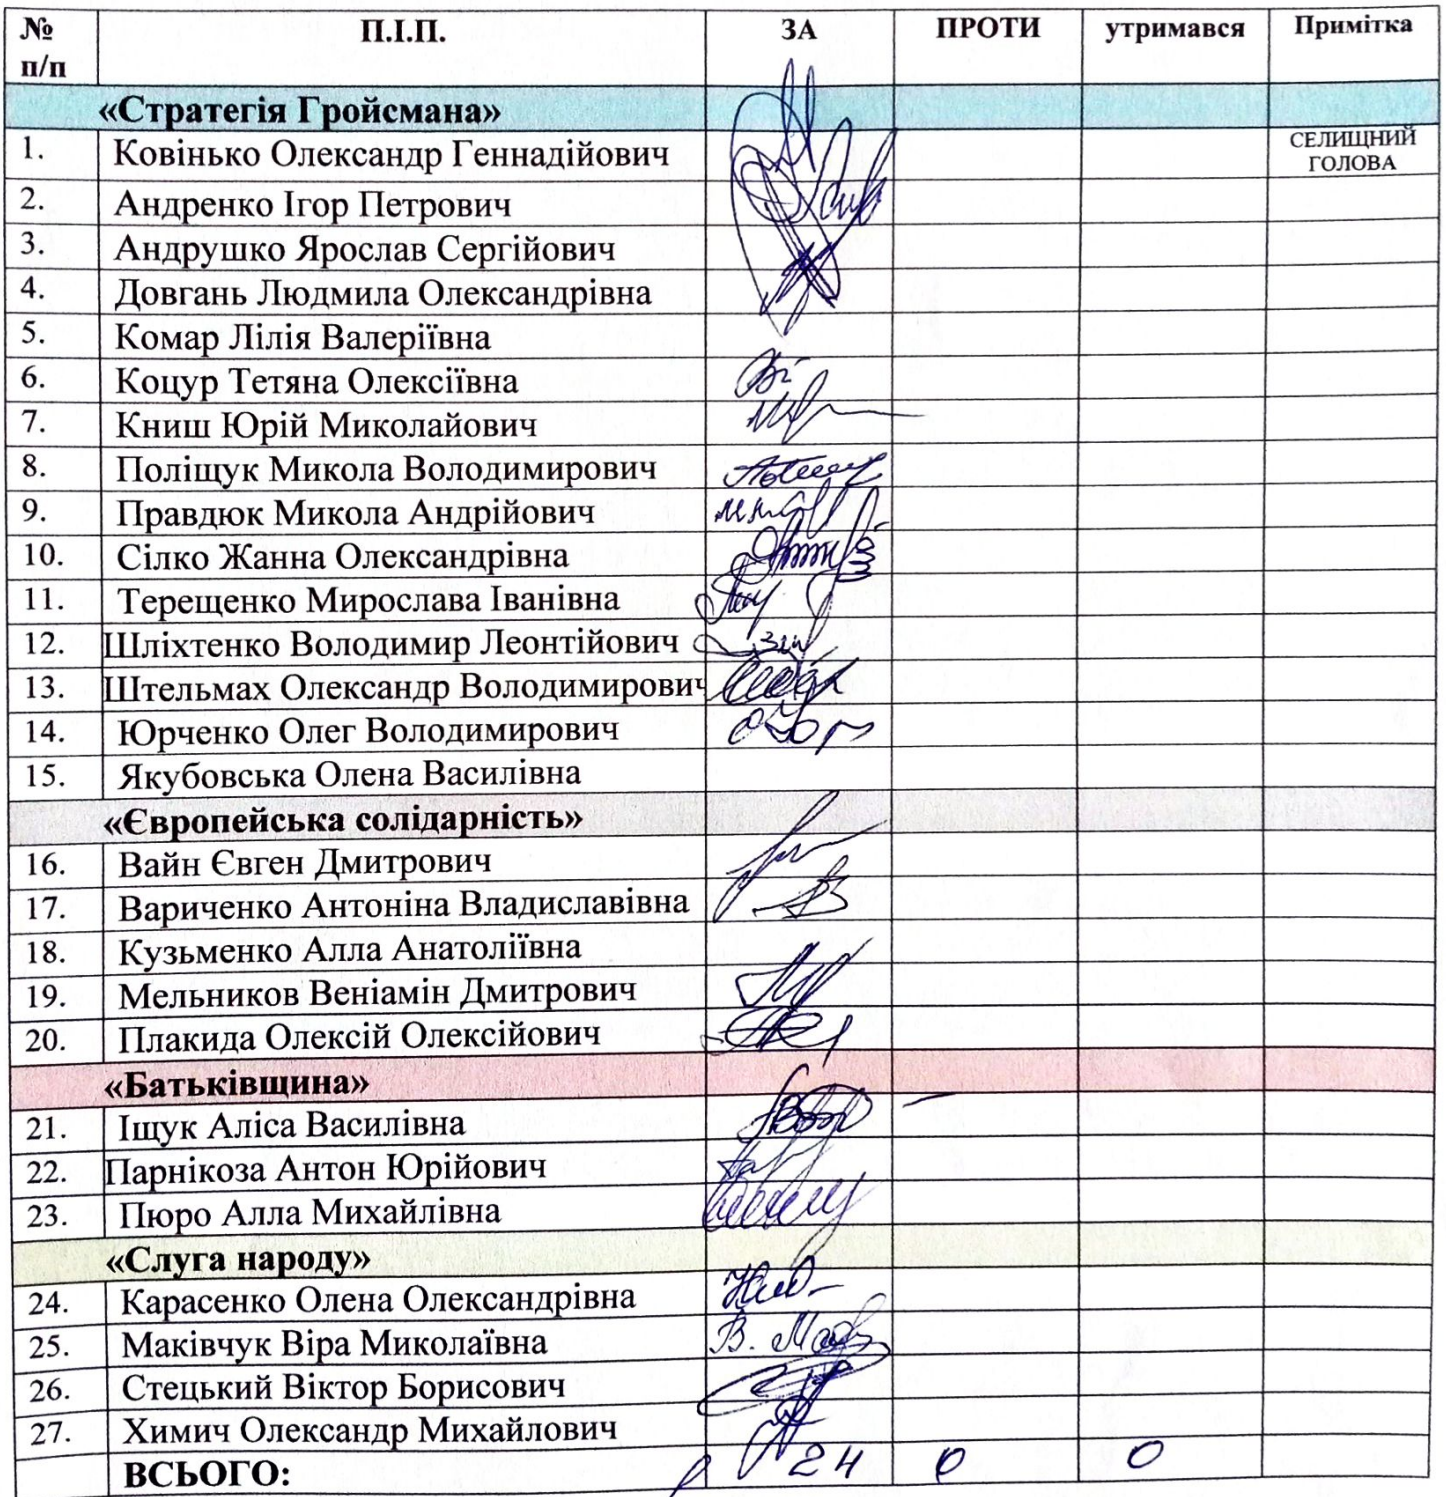 № П.І.П. ЗА ПРОТИ утримався Примітка
п/п
«Стратегія Гройсмана»
1. Ковінько Олександр Геннадійович СЕЛИЩНИЙ
ГОЛОВА
2. Андренко Ігор Петрович
3. Андрушко Ярослав Сергійович
4. Довгань Людмила Олександрівна
5. Комар Лілія Валеріївна
6. Коцур Тетяна Олексіївна
7. Книш Юрій Миколайович
8. Поліщук Микола Володимирович
9. Правдюк Микола Андрійович
10. Сілко Жанна Олександрівна
11. Терещенко Мирослава Іванівна
12. Шліхтенко Володимир Леонтійович
13. Штельмах Олександр Володимирович
14. Юрченко Олег Володимирович
15. Якубовська Олена Василівна
«Європейська солідарність»
16. Вайн Євген Дмитрович
17. Вариченко Антоніна Владиславівна
18. Кузьменко Алла Анатоліївна
19. Мельников Веніамін Дмитрович
20. Плакида Олексій Олексійович
«Батьківщина»
21. Іщук Аліса Василівна
22. Парнікоза Антон Юрійович
23. Пюро Алла Михайлівна
«Слуга народу»
24. Карасенко Олена Олександрівна
25. Маківчук Віра Миколаївна
26. Стецький Віктор Борисович
27. Химич Олександр Михайлович
ВСЬОГО: 24 0 0